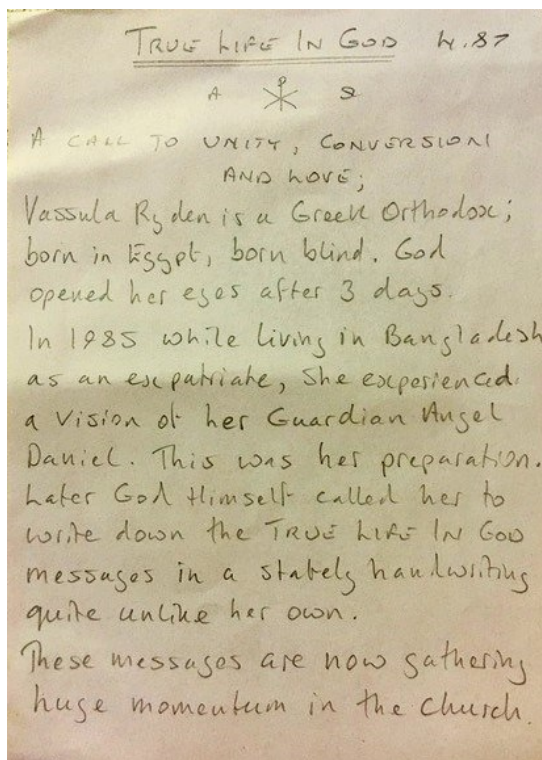 TRUE LIFE IN GOD 4.87
A ☧ Ω
A CALL TO UNITY, CONVERSION
AND LOVE;
Vassula Ryden is a Greek Orthodox;
born in Egypt, born blind. God
opened her eyes after 3 days.
In 1985 while living in Bangladesh
as an expatriate, She experienced
a vision of her Guardian Angel
Daniel. This was her preparation.
Later God Himself called her to
write down the TRUE LIFE IN GOD
messages in a stately handwriting
quite unlike her own.
These messages are now gathering
huge momentum in the church.